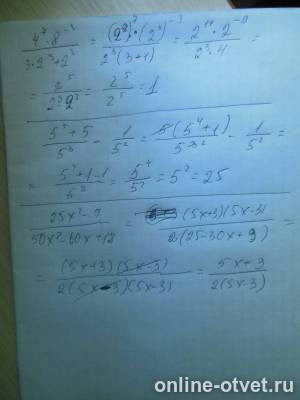 4⁷ · 8⁻³ / (3 · 2³ + 2³) = (2²)⁷ · (2³)⁻³ / (2³(3+1)) = 2¹⁴ · 2⁻⁹ / (2³ · 4) =
= 2⁵ / (2³ 2²) = 2⁵ / 2⁵ = 1
(5⁵ + 5) / 5³ − 1 / 5² = 5(5⁴ + 1) / 5³ − 1 / 5² =
= (5⁴ + 1 − 1) / 5² = 5⁴ / 5² = 5² = 25
(25x² − 9) / (50x² − 60x + 18) = (5x+3)(5x−3) / (2(25−30x + 9)) =
= (5x+3)(5x−3) / (2(5x−3)(5x−3)) = (5x + 3) / (2(5x−3))
online-otvet.ru